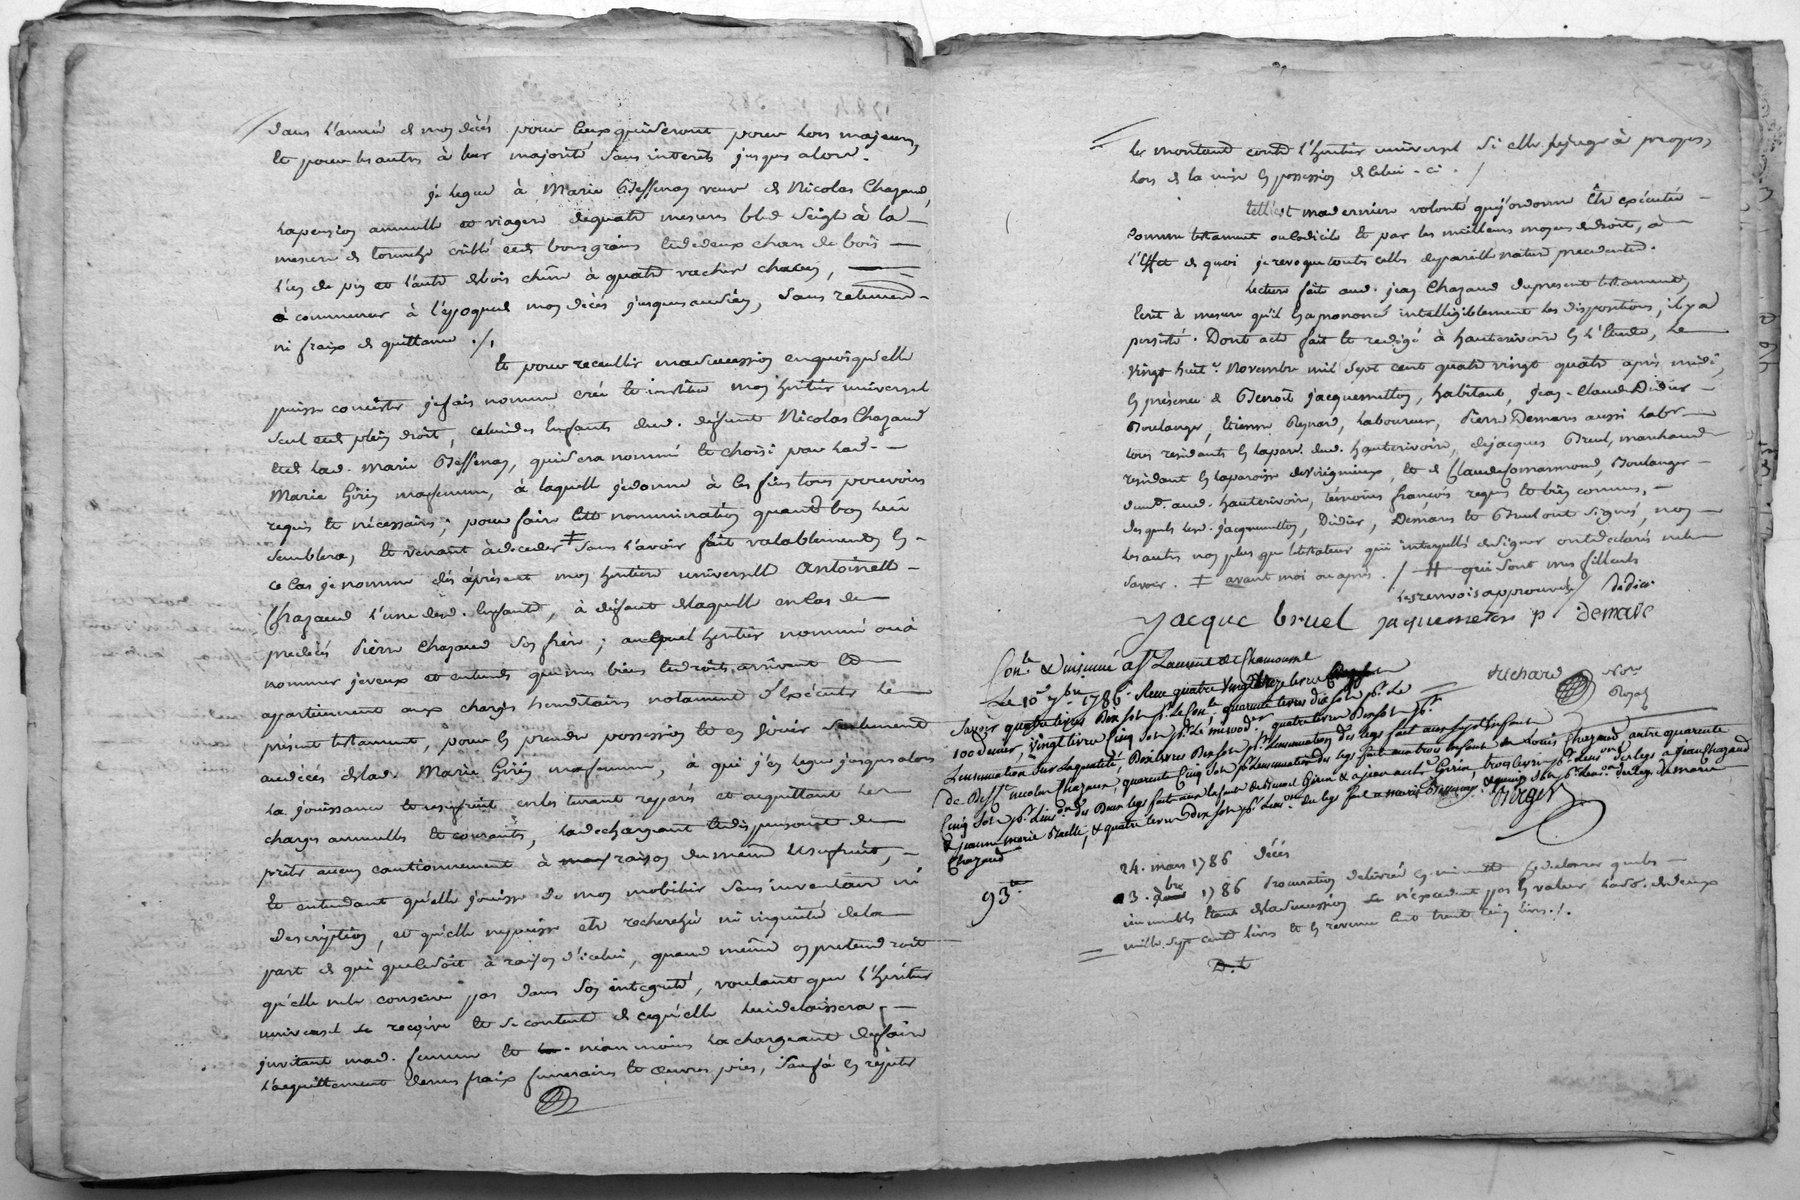 dans l'année de mon décès pour ceux qui seront pour lors majeurs,
et pour les autres à leur majorité sans interets jusques alors.
je legue à Marie Bessenay veuve de Nicolas Chazaud,
la pension annuelle et viagere de quatre mesures bled seigle à la
mesure de criblé et de bon grain et de deux chars de bois
l'un de pin et l'autre de bois chêne à quatre vaches chacun,
à commencer à l'époque de mon décès jusques au sien, sans retenue
ni fraix de quittance ./.
et pour recueillir ma succession en quoi qu'elle
puisse consister je fais nomme crée et institue mon heritier universel
seul et de plein droit, celui des enfants dud. defunt Nicolas Chazaud
et de lad. Marie Bessenay, qui sera nommé et choisi par lad.
Marie Girin ma femme, à laquelle je donne à ces fins tous pouvoirs
requis et nécessaires; pour faire cette nomination quand bon lui
semblera, et venant à deceder ‡ sans l'avoir fait valablement en
ce cas je nomme dès à présent mon heritiere universelle Antoinette
Chazaud l'une desd. enfants, à défaut de laquelle en cas de
predécès Pierre Chazaud son frère; auquel heritier nommé ou à
nommer je veux et entends que mes biens et droits arrivent et
appartiennent aux charges hereditaires notament d'executer le
présent testament, pour en prendre possession et en jouir seulement
au décès de lad. Marie Girin ma femme, à qui j'en legue jusques alors
la jouissance et usufruit en les tenant reparés et acquittant les
charges annuelles et courantes, la dechargeant et dispensant de
prêter aucun cautionnement à raison du même usufruit,
et entendant qu'elle jouisse de mon mobilier sans inventaire ni
description, et qu'elle ne puisse etre recherchée ni inquiétée de la
part de qui que ce soit à raison d'icelui, quand même on pretendroit
qu'elle ne le conserve pas dans son integrité, voulant que l'heritier
universel le reçoive et se contente de ce qu'elle lui delaissera,
invitant mad. femme et néanmoins la chargeant de faire
l'acquittement de mes fraix funeraires et œuvres pies, sauf à en répéter
le montant contre l'heritier universel si elle le juge à propos,
lors de la mise en possession de celui-ci ./
telle est ma derniere volonté que j'ordonne être executée
comme testament ou codicile et par les meilleurs moyens de droit, à
l'effet de quoi je revoque toutes celles de pareille nature precedentes.
Lecture faite aud. jean Chazaud du present testament
ecrit à mesure qu'il en a prononcé intelligiblement les dispositions, il y a
persisté. Dont acte fait et redigé à hauterivoire en l'étude, le
vingt huit e. Novembre mil sept cent quatre vingt quatre après midi,
en présence de Benoit jacquemetton, habitant, jean-Claude Didier
Boulanger, etienne Reynard, laboureur, Pierre Demare aussi labr.
tous residants en la par. dud. hauterivoire, de jacques Bruel, marchand
residant en la paroisse de Virigneux, et de Claude Commarmond, Boulanger
dem.t aud. hauterivoire, témoins françois requis et bien connus,
desquels lesd. jacquemetton, Didier, Demare et Bruel ont signé, non
les autres non plus que le testateur qui interpellés de signer ont declaré ne le
savoir. ‡ avant moi ou après ./ ⧺ qui sont mes filleuls
les renvois approuvés Didier
jacque bruel jaquemeton p demare
Richard No.re Royal
Con.le & insinué a S.t Laurent de Chamousset
Le 10 7bre 1786. Reçu quatre vingt treize livres
Savoir quatre livres Dix sols p.r Le Con.le, quarente livres dix sols p.r Le
100 denier, vingt livres cinq sols p.r Le
L'insinuation sur la qualité, Dix livres Dix sols p.r L'insinuation des legs fait aux sept enfants
Chazaud
Berger
93 lt.
24. mars 1786 décès
3. 9bre 1786 Procuration delivrée en minutte
immeubles etant de la succession ne n'excedent pas en valeur lad. de deux
mille sept cents livres et en revenu cent trente cinq livres ./.
D. t